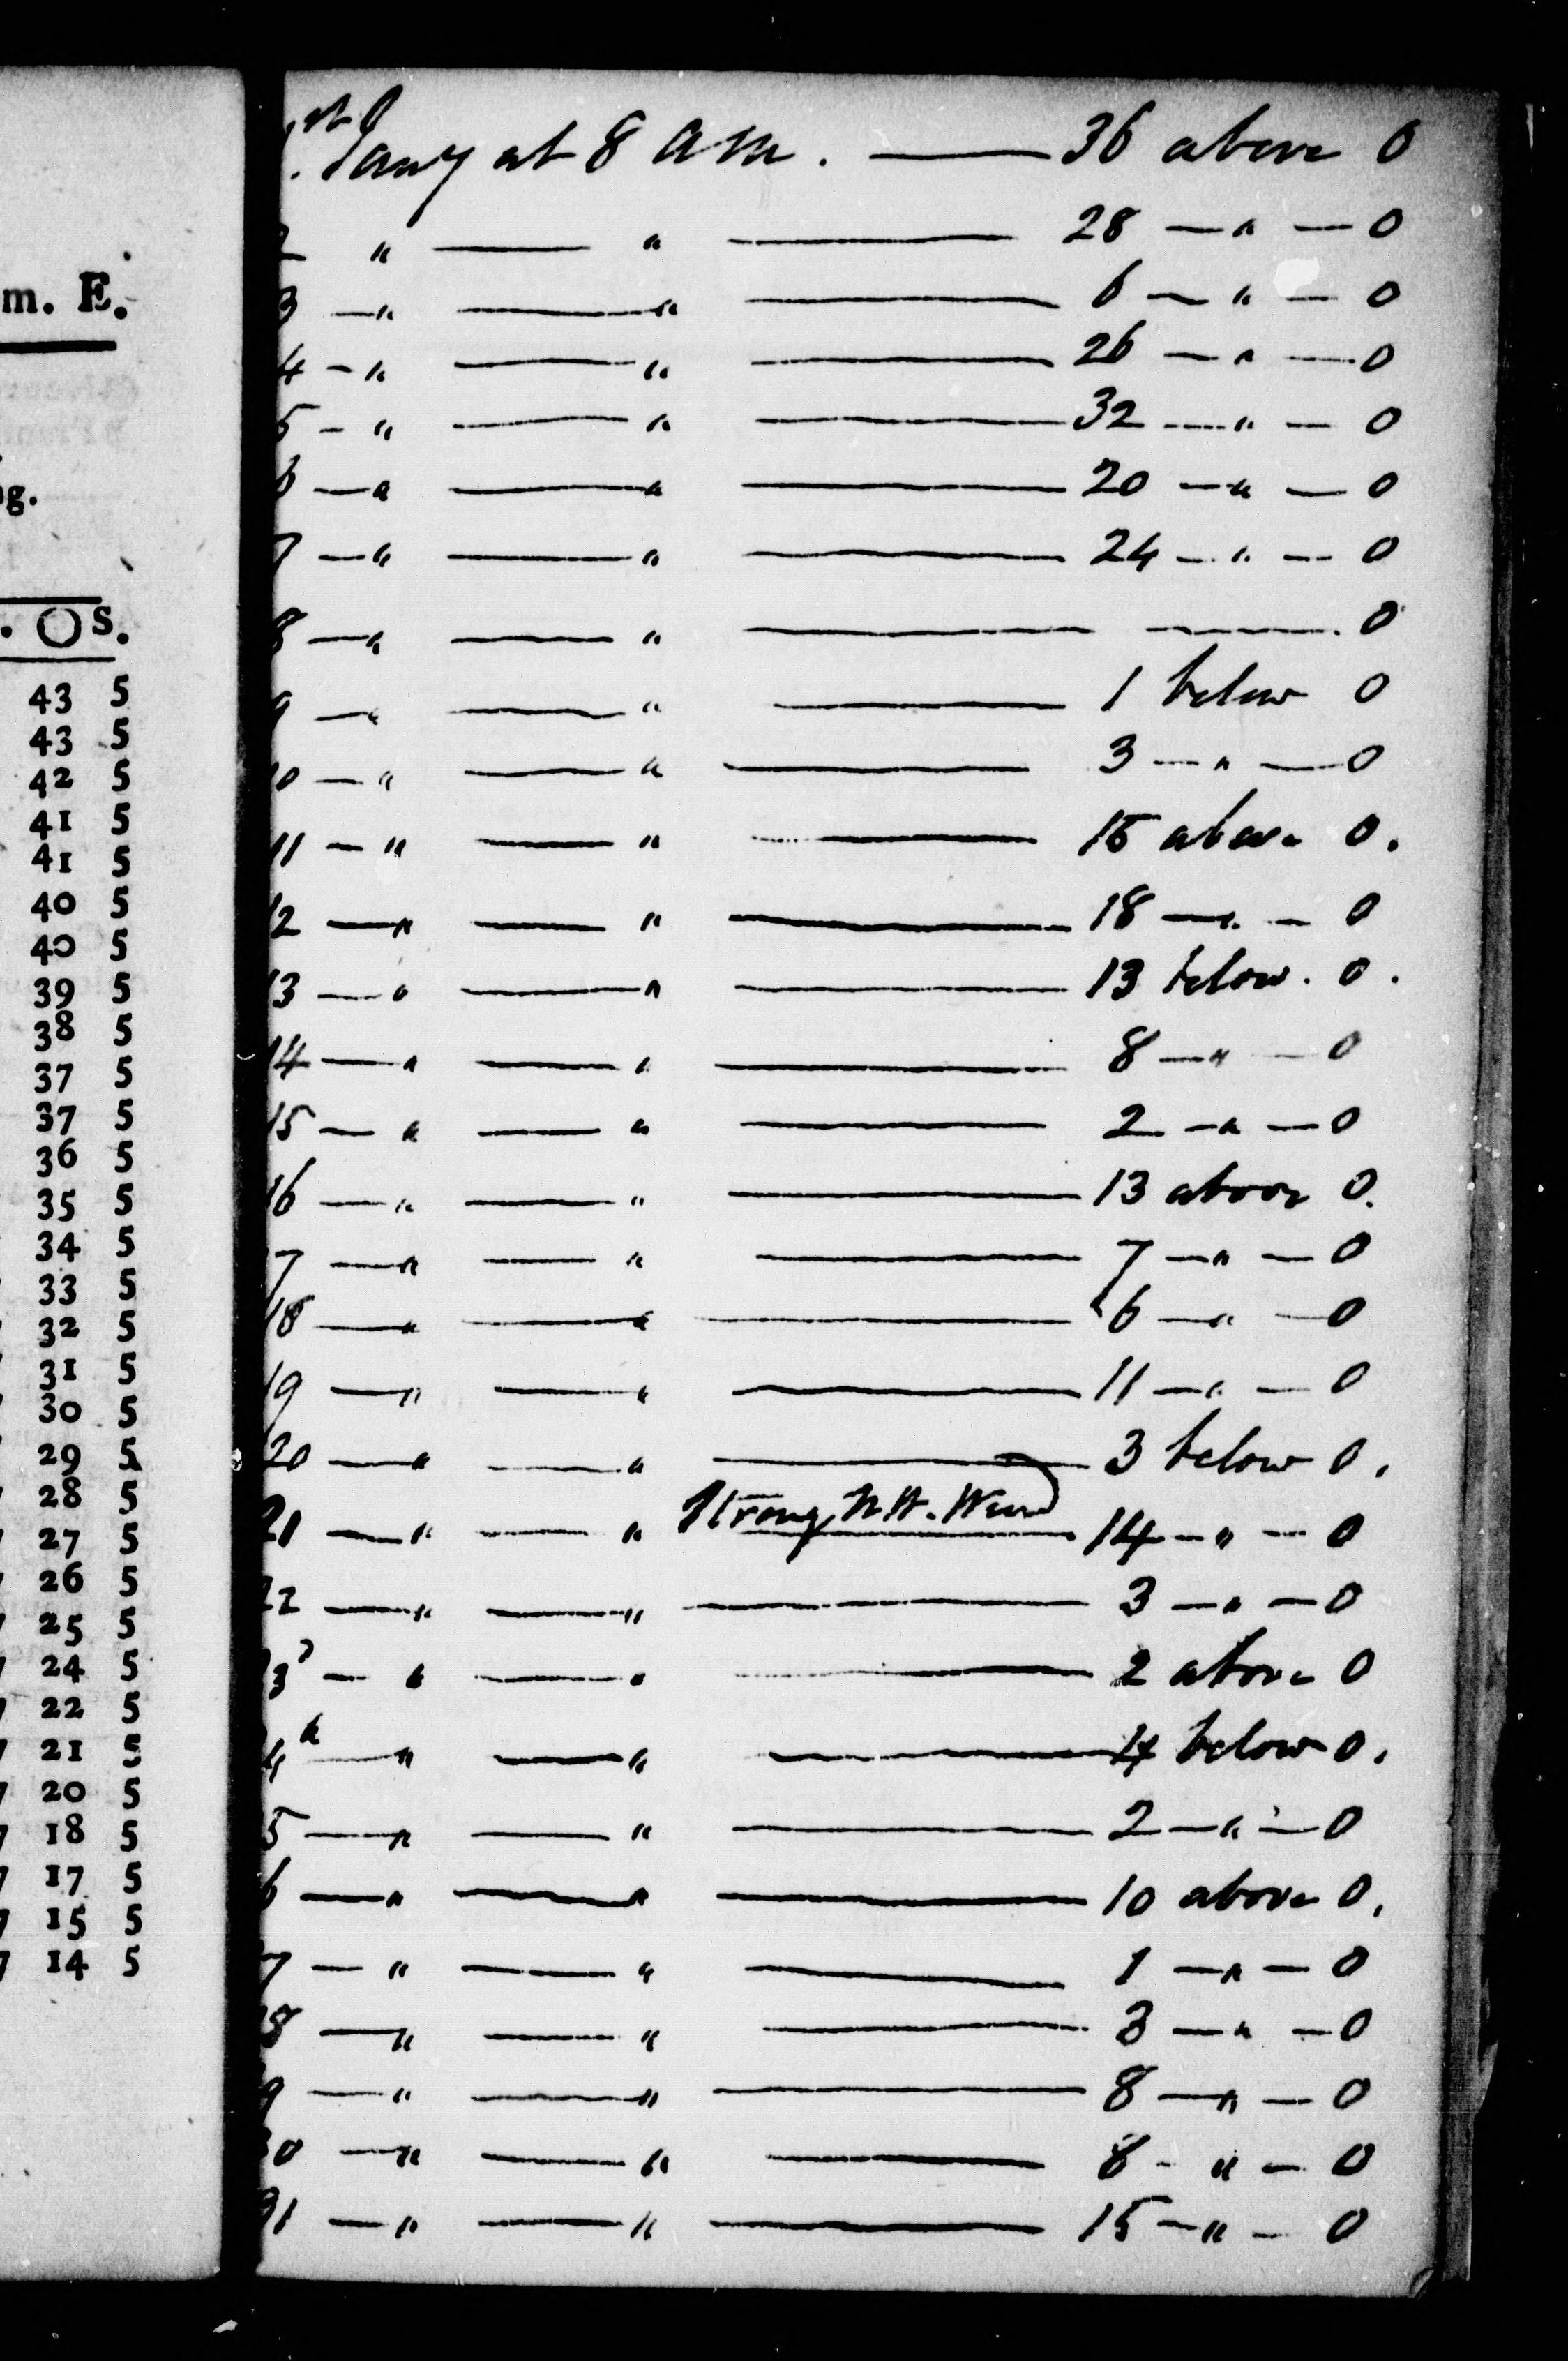 m. E.
g.
. OS.
43 5
43 5
42 5
41 5
41 5
40 5
40 5
39 5
38 5
37 5
37 5
36 5
35 5
34 5
33 5
32 5
31 5
30 5
29 5
28 5
27 5
26 5
25 5
24 5
22 5
21 5
20 5
18 5
17 5
15 5
14 5
1st Jany at 8 a m. — 36 above 0
2 " — " — 28 — " — 0
3 — " — " — 6 — " — 0
4 — " — " — 26 — " — 0
5 — " — " — 32 — " — 0
6 — " — " — 20 — " — 0
7 — " — " — 24 — " — 0
8 — " — " — — 0
9 — " — " — 1 below 0
10 — " — " — 3 — " — 0
11 — " — " — 15 above 0.
12 — " — " — 18 — " — 0
13 — " — " — 13 below. 0.
14 — " — " — 8 — " — 0
15 — " — " — 2 — " — 0
16 — " — " — 13 above 0.
7 — " — " — 7 — " — 0
18 — " — " — 6 — " — 0
19 — " — " — 11 — " — 0
20 — " — " — 3 below 0.
21 — " — " Strong N W. Wind — 14 — " — 0
22 — " — " — 3 — " — 0
3d — " — " — 2 above 0
4h — " — " — 4 below 0.
5 — " — " — 2 — " — 0
6 — " — " — 10 above 0.
7 — " — " — 1 — " — 0
8 — " — " — 3 — " — 0
9 — " — " — 8 — " — 0
0 — " — " — 8 - " — 0
31 — " — " — 15 — " — 0